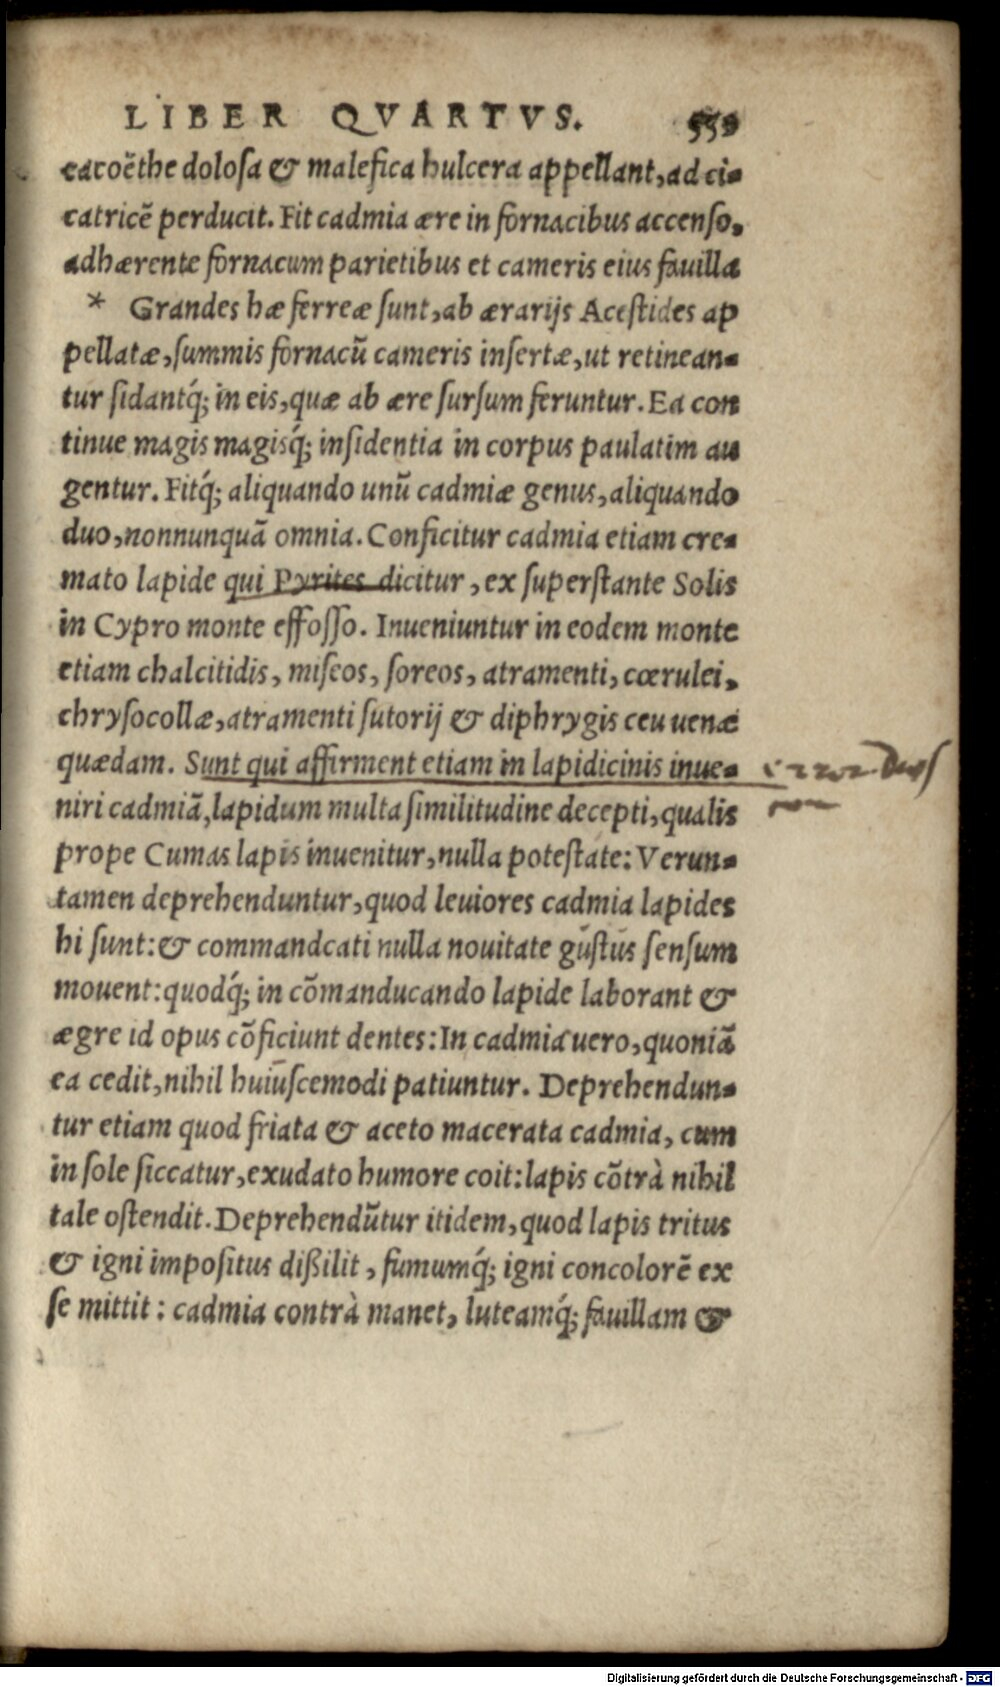 LIBER QVARTVS. 559
cacoẽthe dolosa & malefica hulcera appellant, ad ci-
catricẽ perducit. Fit cadmia ære in fornacibus accenso,
adhærente fornacum parietibus et cameris eius fauilla
* Grandes hæ ferreæ sunt, ab ærarijs Acestides ap
pellatæ, summis fornacũ cameris insertæ, ut retinean-
tur sidantq́; in eis, quæ ab ære sursum feruntur. Ea con
tinue magis magisq́; insidentia in corpus paulatim au
gentur. Fitq́; aliquando unũ cadmiæ genus, aliquando
duo, nonnunquã omnia. Conficitur cadmia etiam cre-
mato lapide qui Pyrites dicitur, ex superstante Solis
in Cypro monte effosso. Inueniuntur in eodem monte
etiam chalcitidis, miseos, soreos, atramenti, cœrulei,
chrysocollæ, atramenti sutorij & diphrygis ceu uenæ
quædam. Sunt qui affirment etiam in lapidicinis inue-
niri cadmiã, lapidum multa similitudine decepti, qualis
prope Cumas lapis inuenitur, nulla potestate: Verun-
tamen deprehenduntur, quod leuiores cadmia lapides
hi sunt: & commandcati nulla nouitate gustus sensum
mouent: quodq́; in cõmanducando lapide laborant &
ægre id opus cõficiunt dentes: In cadmia uero, quoniã
ea cedit, nihil huiuscemodi patiuntur. Deprehendun-
tur etiam quod friata & aceto macerata cadmia, cum
in sole siccatur, exudato humore coit: lapis cõtrà nihil
tale ostendit. Deprehendũtur itidem, quod lapis tritus
& igni impositus dißilit, fumumq́; igni concolorẽ ex
se mittit: cadmia contrà manet, luteamq́; fauillam &
Digitalisierung gefördert durch die Deutsche Forschungsgemeinschaft - DFG